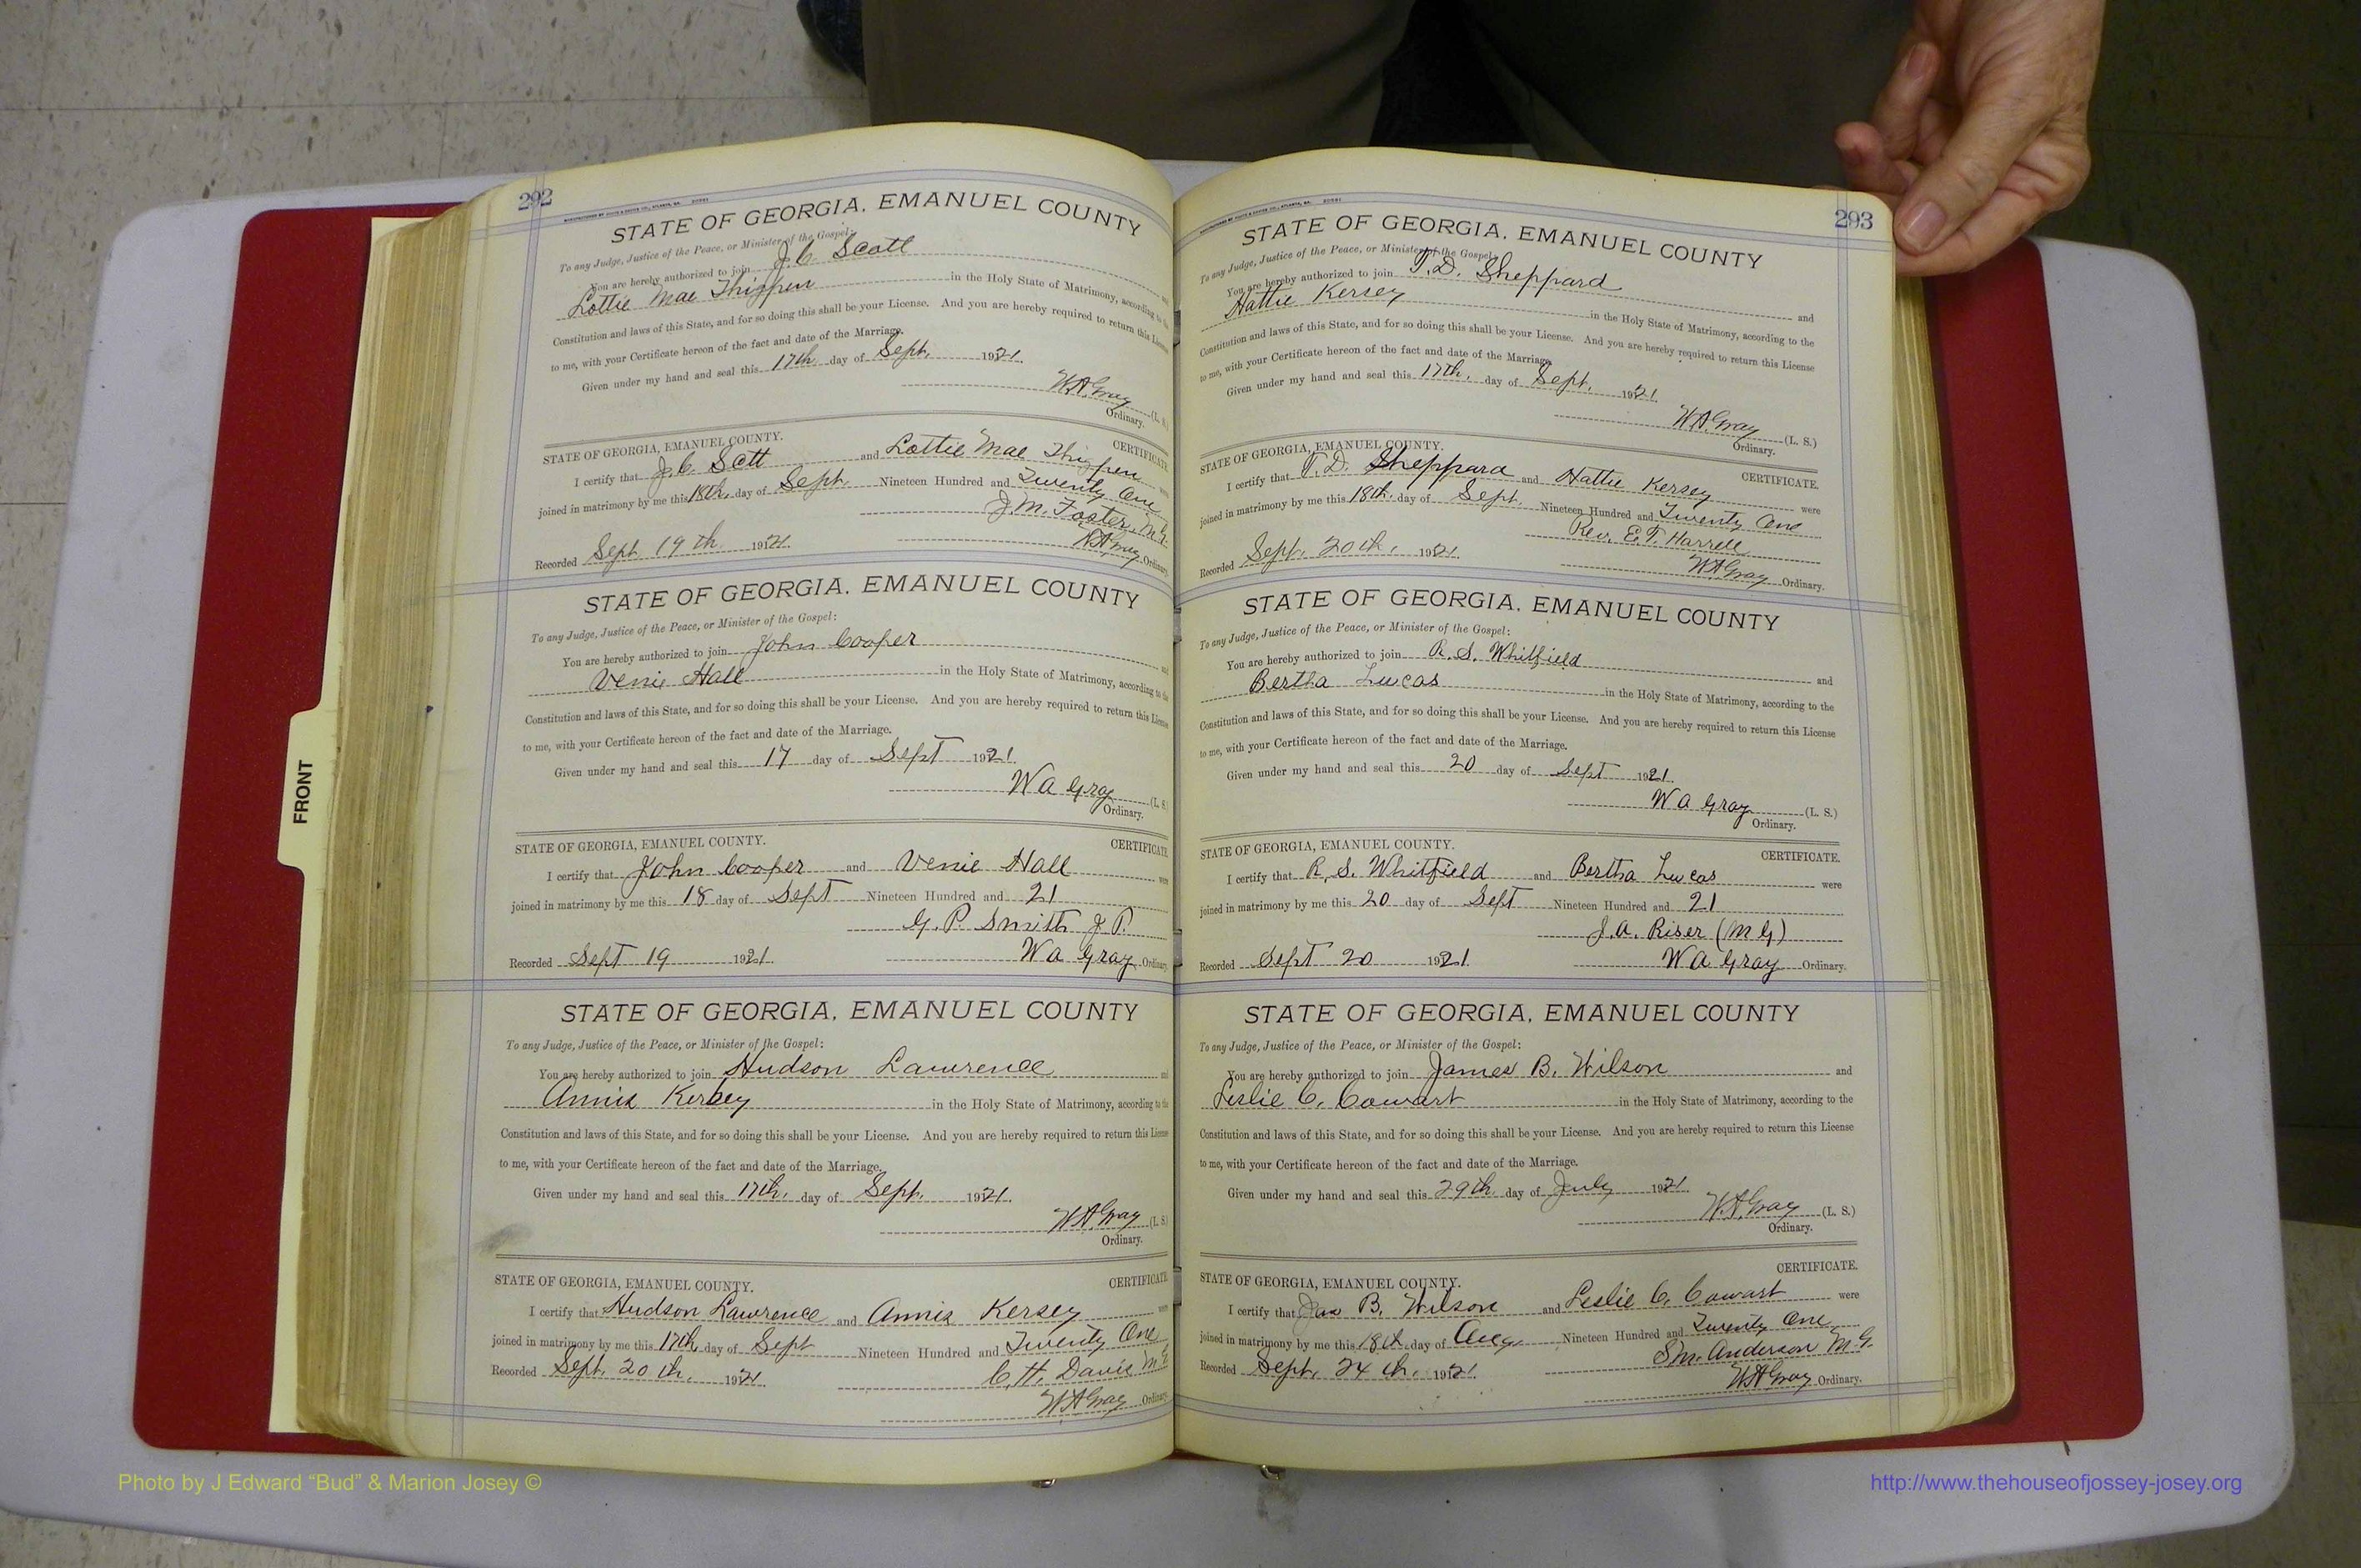 292
STATE OF GEORGIA, EMANUEL COUNTY
To any Judge, Justice of the Peace, or Minister of the Gospel:
You are hereby authorized to join J. C. Scott
Lottie Mae Thigpen in the Holy State of Matrimony, according to the
Constitution and laws of this State, and for so doing this shall be your License. And you are hereby required to return this License
to me, with your Certificate hereon of the fact and date of the Marriage.
Given under my hand and seal this 17th day of Sept. 1921.
W.A. Gray (L. S.)
Ordinary.
STATE OF GEORGIA, EMANUEL COUNTY. CERTIFICATE.
I certify that J. C. Scott and Lottie Mae Thigpen were
joined in matrimony by me this 18th. day of Sept. Nineteen Hundred and Twenty One
J. M. Foster, M.G.
Recorded Sept. 19th 1921. W.A. Gray Ordinary.
STATE OF GEORGIA, EMANUEL COUNTY
To any Judge, Justice of the Peace, or Minister of the Gospel:
You are hereby authorized to join John Cooper and
Venie Hall in the Holy State of Matrimony, according to the
Constitution and laws of this State, and for so doing this shall be your License. And you are hereby required to return this License
to me, with your Certificate hereon of the fact and date of the Marriage.
Given under my hand and seal this 17 day of Sept 1921.
W A Gray (L. S.)
Ordinary.
STATE OF GEORGIA, EMANUEL COUNTY. CERTIFICATE.
I certify that John Cooper and Venie Hall were
joined in matrimony by me this 18 day of Sept Nineteen Hundred and 21
G. P. Smith J P.
Recorded Sept 19 1921. W A Gray Ordinary.
STATE OF GEORGIA, EMANUEL COUNTY
To any Judge, Justice of the Peace, or Minister of the Gospel:
You are hereby authorized to join Hudson Lawrence and
Annis Kersey in the Holy State of Matrimony, according to the
Constitution and laws of this State, and for so doing this shall be your License. And you are hereby required to return this License
to me, with your Certificate hereon of the fact and date of the Marriage.
Given under my hand and seal this 17th. day of Sept. 1921.
W.A. Gray (L. S.)
Ordinary.
STATE OF GEORGIA, EMANUEL COUNTY. CERTIFICATE.
I certify that Hudson Lawrence and Annis Kersey were
joined in matrimony by me this 17th. day of Sept Nineteen Hundred and Twenty One
C. H. Davis M.G.
Recorded Sept. 20th. 1921. W.A. Gray Ordinary.
293
STATE OF GEORGIA, EMANUEL COUNTY
To any Judge, Justice of the Peace, or Minister of the Gospel:
You are hereby authorized to join T. D. Sheppard and
Hattie Kersey in the Holy State of Matrimony, according to the
Constitution and laws of this State, and for so doing this shall be your License. And you are hereby required to return this License
to me, with your Certificate hereon of the fact and date of the Marriage.
Given under my hand and seal this 17th. day of Sept. 1921.
W.A. Gray (L. S.)
Ordinary.
STATE OF GEORGIA, EMANUEL COUNTY. CERTIFICATE.
I certify that T. D. Sheppard and Hattie Kersey were
joined in matrimony by me this 18th. day of Sept. Nineteen Hundred and Twenty One
Rev. E. T. Harrell
Recorded Sept. 20th. 1921. W.A. Gray Ordinary.
STATE OF GEORGIA, EMANUEL COUNTY
To any Judge, Justice of the Peace, or Minister of the Gospel:
You are hereby authorized to join R. S. Whitfield and
Bertha Lucas in the Holy State of Matrimony, according to the
Constitution and laws of this State, and for so doing this shall be your License. And you are hereby required to return this License
to me, with your Certificate hereon of the fact and date of the Marriage.
Given under my hand and seal this 20 day of Sept 1921.
W A Gray (L. S.)
Ordinary.
STATE OF GEORGIA, EMANUEL COUNTY. CERTIFICATE.
I certify that R. S. Whitfield and Bertha Lucas were
joined in matrimony by me this 20 day of Sept Nineteen Hundred and 21
J. A. Riser (M G)
Recorded Sept 20 1921. W A Gray Ordinary.
STATE OF GEORGIA, EMANUEL COUNTY
To any Judge, Justice of the Peace, or Minister of the Gospel:
You are hereby authorized to join James B. Wilson and
Leslie C. Cowart in the Holy State of Matrimony, according to the
Constitution and laws of this State, and for so doing this shall be your License. And you are hereby required to return this License
to me, with your Certificate hereon of the fact and date of the Marriage.
Given under my hand and seal this 29th day of July 1921.
W.A. Gray (L. S.)
Ordinary.
STATE OF GEORGIA, EMANUEL COUNTY. CERTIFICATE.
I certify that Jas B. Wilson and Leslie C. Cowart were
joined in matrimony by me this 18th day of Aug. Nineteen Hundred and Twenty One
S M. Anderson M.G.
Recorded Sept. 24th. 1921. W.A. Gray Ordinary.
FRONT
Photo by J Edward “Bud” & Marion Josey ©
http://www.thehouseofjossey-josey.org